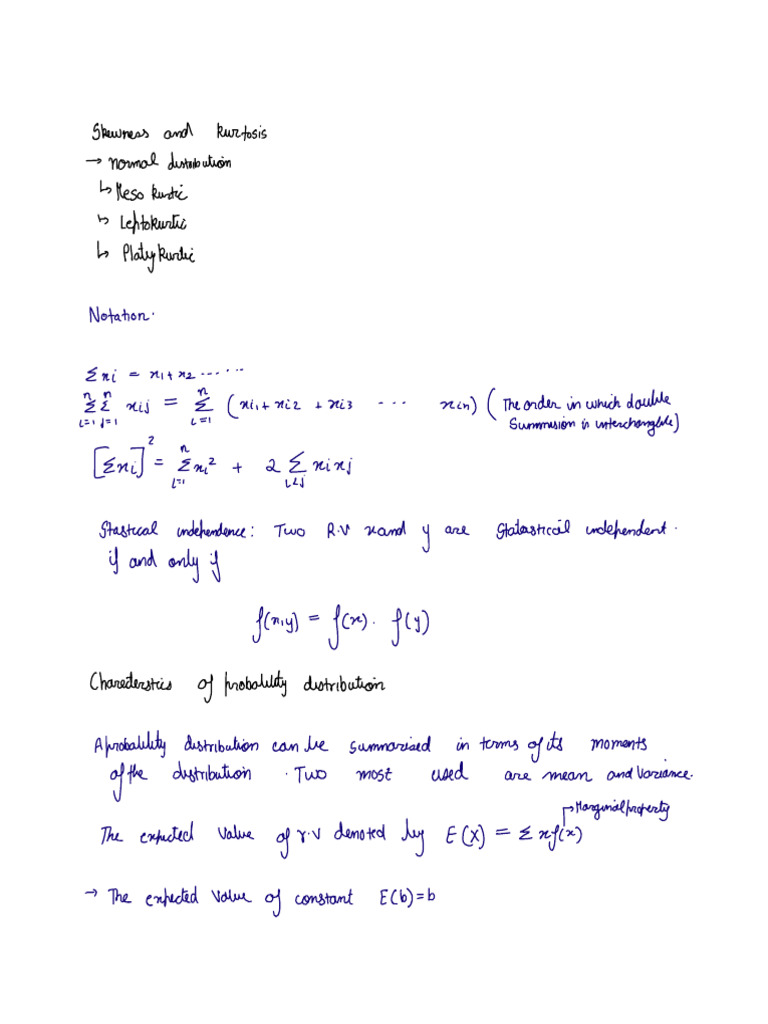 Skewness and kurtosis
→ normal distribution
↳ Meso kurtic
↳ Leptokurtic
↳ Platykurtic
Notation.
Σxi = x1 + x2 ......
nΣi=1 nΣj=1 xij = nΣi=1 (xi1 + xi2 + xi3 ... xin) (The order in which double
Summision is interchangble)
[Σxi]² = nΣi=1 xi² + 2 Σi<j xixj
Stastical independence: Two R.V x and y are Statastical independent.
if and only if
f(x,y) = f(x). f(y)
Charecterstics of probability distribution
A probability distribution can be summarised in terms of its moments
of the distribution. Two most used are mean and variance.
↱ Marginal property
The expected value of r.v denoted by E(X) = Σ xf(x)
→ The expected value of constant E(b)=b